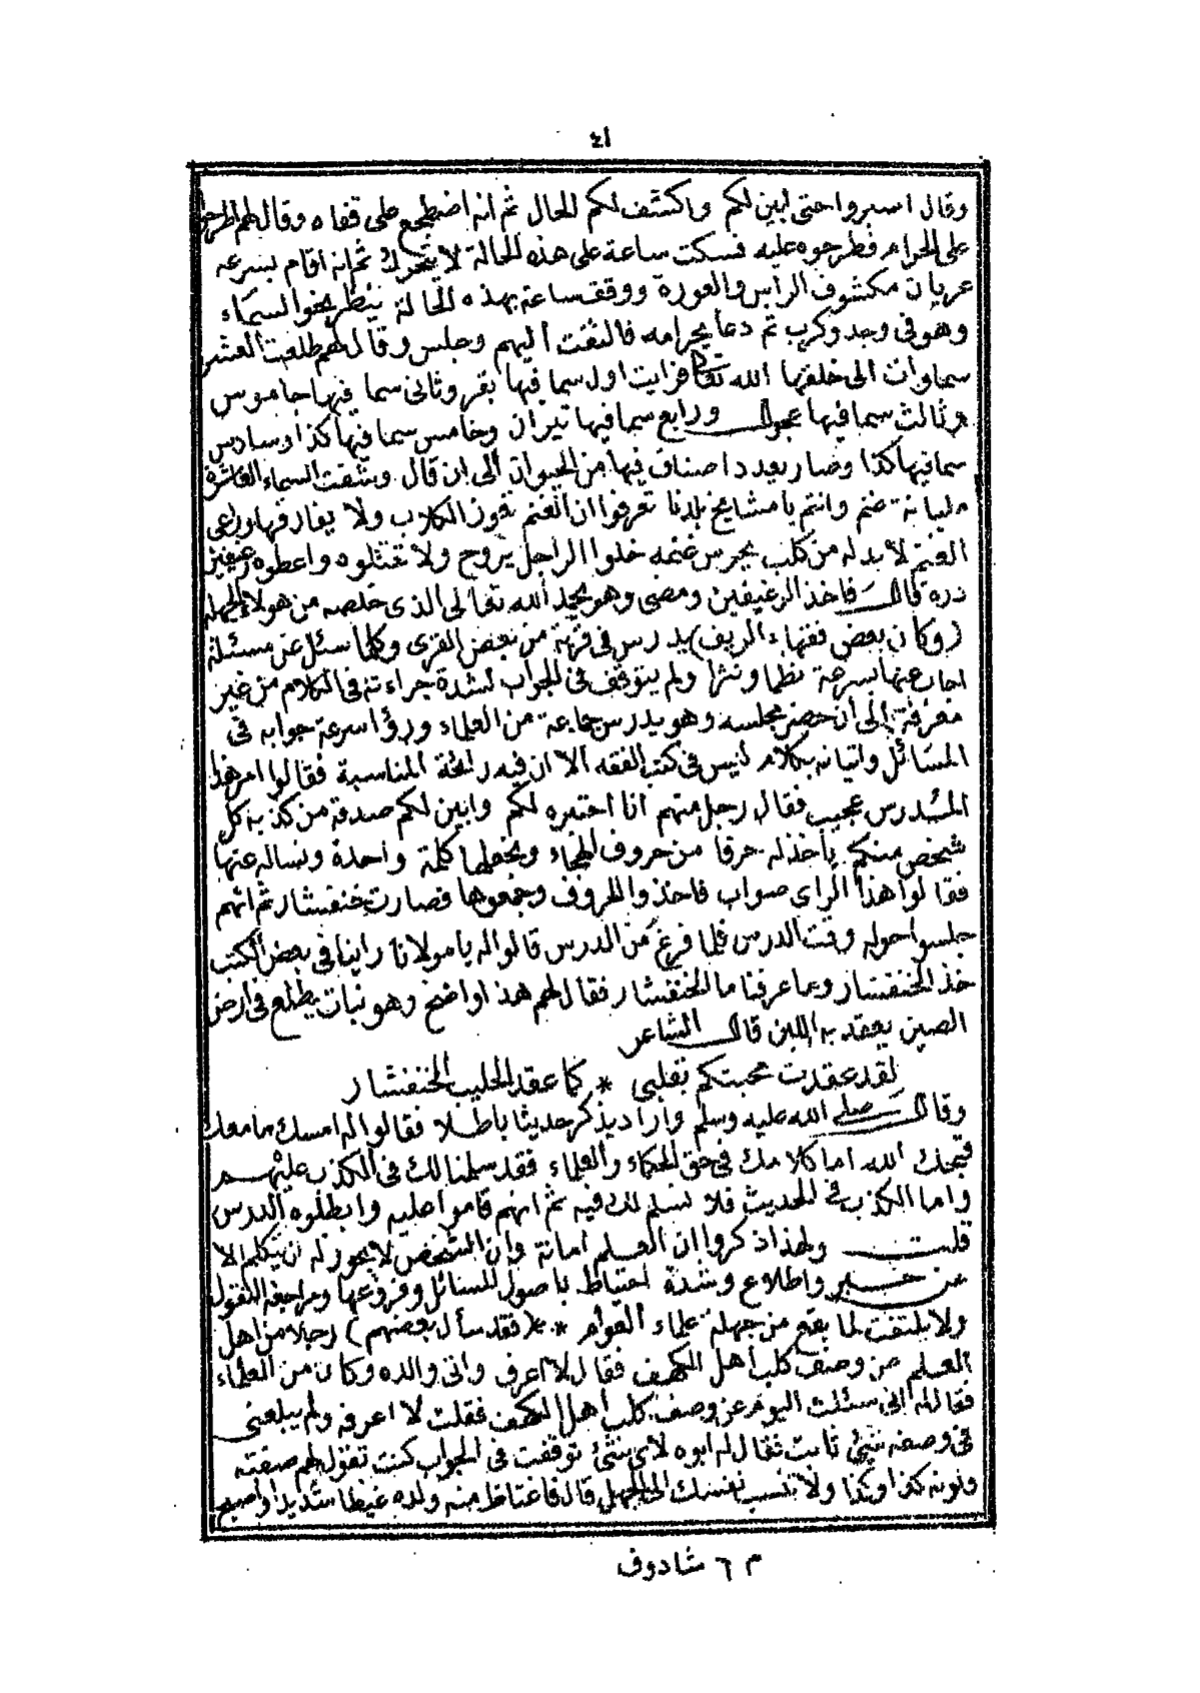 ٤١
وقال اصبروا حتى ابين لكم واكشف لكم الحال ثم انه اضطجع على قفاه وقال لهم اطرحوا
على الحرام فطرحوه عليه فسكت ساعة على هذه الحالة لا يتحرك ثم انه اقام بسرعه
عريان مكشوف الرأس والعورة ووقف ساعة بهذه الحالة ينظر نحو السماء
وهو فى وجد وكرب ثم دعا بحرامه فالتفت اليهم وجلس وقال لهم طلعت العشر
سماوات الى خلقها الله تعالى فرايت اول سما فيها بقر وثانى سما فيها جاموس
وثالث سما فيها عجول ورابع سما فيها تيران وخامس سما فيها كذا وسادس
سما فيها كذا وصار يعدد اصناف فيها من الحيوان الى ان قال وشقت السماء العاشرة
مليانة غنم وانتم يا مشايخ بلدنا تعرفوا ان الغنم تعوز الكلاب ولا يفارقها وراعى
الغنم لا بد له من كلب يحرس غنمه خلوا الراجل يروح ولا تقتلوه واعطوه رغيفين
دره قال فاخذ الرغيفين ومضى وهو يحمد الله تعالى الذى خلصه من هولاء الجهلة
(وكان بعض فقهاء الريف) يدرس فى قرية من بعض القرى وكلما سئل عن مسئلة
اجاب عنها بسرعة نظما ونثرا ولم يتوقف فى الجواب لشدة جراءته فى الكلام من غير
معرفة الى أن حضر مجلسه وهو يدرس جماعة من العلماء ورؤا سرعة جوابه فى
المسائل واتيانه بكلام ليس فى كتب الفقه الا ان فيه رائحة المناسبة فقالوا امر هذا
المدرس عجيب فقال رجل منهم انا اختبره لكم وابين لكم صدقه من كذبه كل
شخص منكم يأخذ له حرفا من حروف الهجاء ويجعلها كلمة واحدة ونساله عنها
فقالوا هذا الراى صواب فاخذوا الحروف وجمعوها فصارت خنفشار ثم انهم
جلسوا حوله وقت الدرس فلما فرغ من الدرس قالوا له يا مولانا راينا فى بعض الكتب
خذ الخنفشار وما عرفنا ما الخنفشار فقال لهم هذا واضح وهو نبات يطلع فى ارض
الصين يعقد به اللبن قال الشاعر
لقد عقدت محبتكم بقلبى * كما عقد الحليب الخنفشار
وقال صلى الله عليه وسلم واراد يذكر حديثا باطلا فقالوا له امسك ما معك
قبحك الله اما كلامك فى حق الحكماء والعلماء فقد سلمنا لك فى الكذب عليهم
واما الكذب فى الحديث فلا نسلم لك فيه ثم انهم قاموا عليه وابطلوه الدرس
قلت ولهذا ذكروا ان العلم امانة وان الشخص لا يجوز له ان يتكلم الا
عن خبر واطلاع وشدة احتياط باصول المسائل وفروعها ومراجعة النقول
ولا يلتفت لما يقع من جهلة علماء العوام * * (فقد سأل بعضهم) رجلا من اهل
العلم عن وصف كلب أهل الكهف فقال لا اعرف واتى والده وكان من العلماء
فقال له انى سئلت اليوم عن وصف كلب أهل الكهف فقلت لا اعرفه ولم يبلغنى
فى وصفه شئ ثابت فقال له ابوه لاى شئ توقفت فى الجواب كنت تقول لهم صفته
ولونه كذا وكذا ولا تنسب نفسك الى الجهل قال فاغتاظ منه ولده غيظا شديدا واصبح
م ٦ شادوف